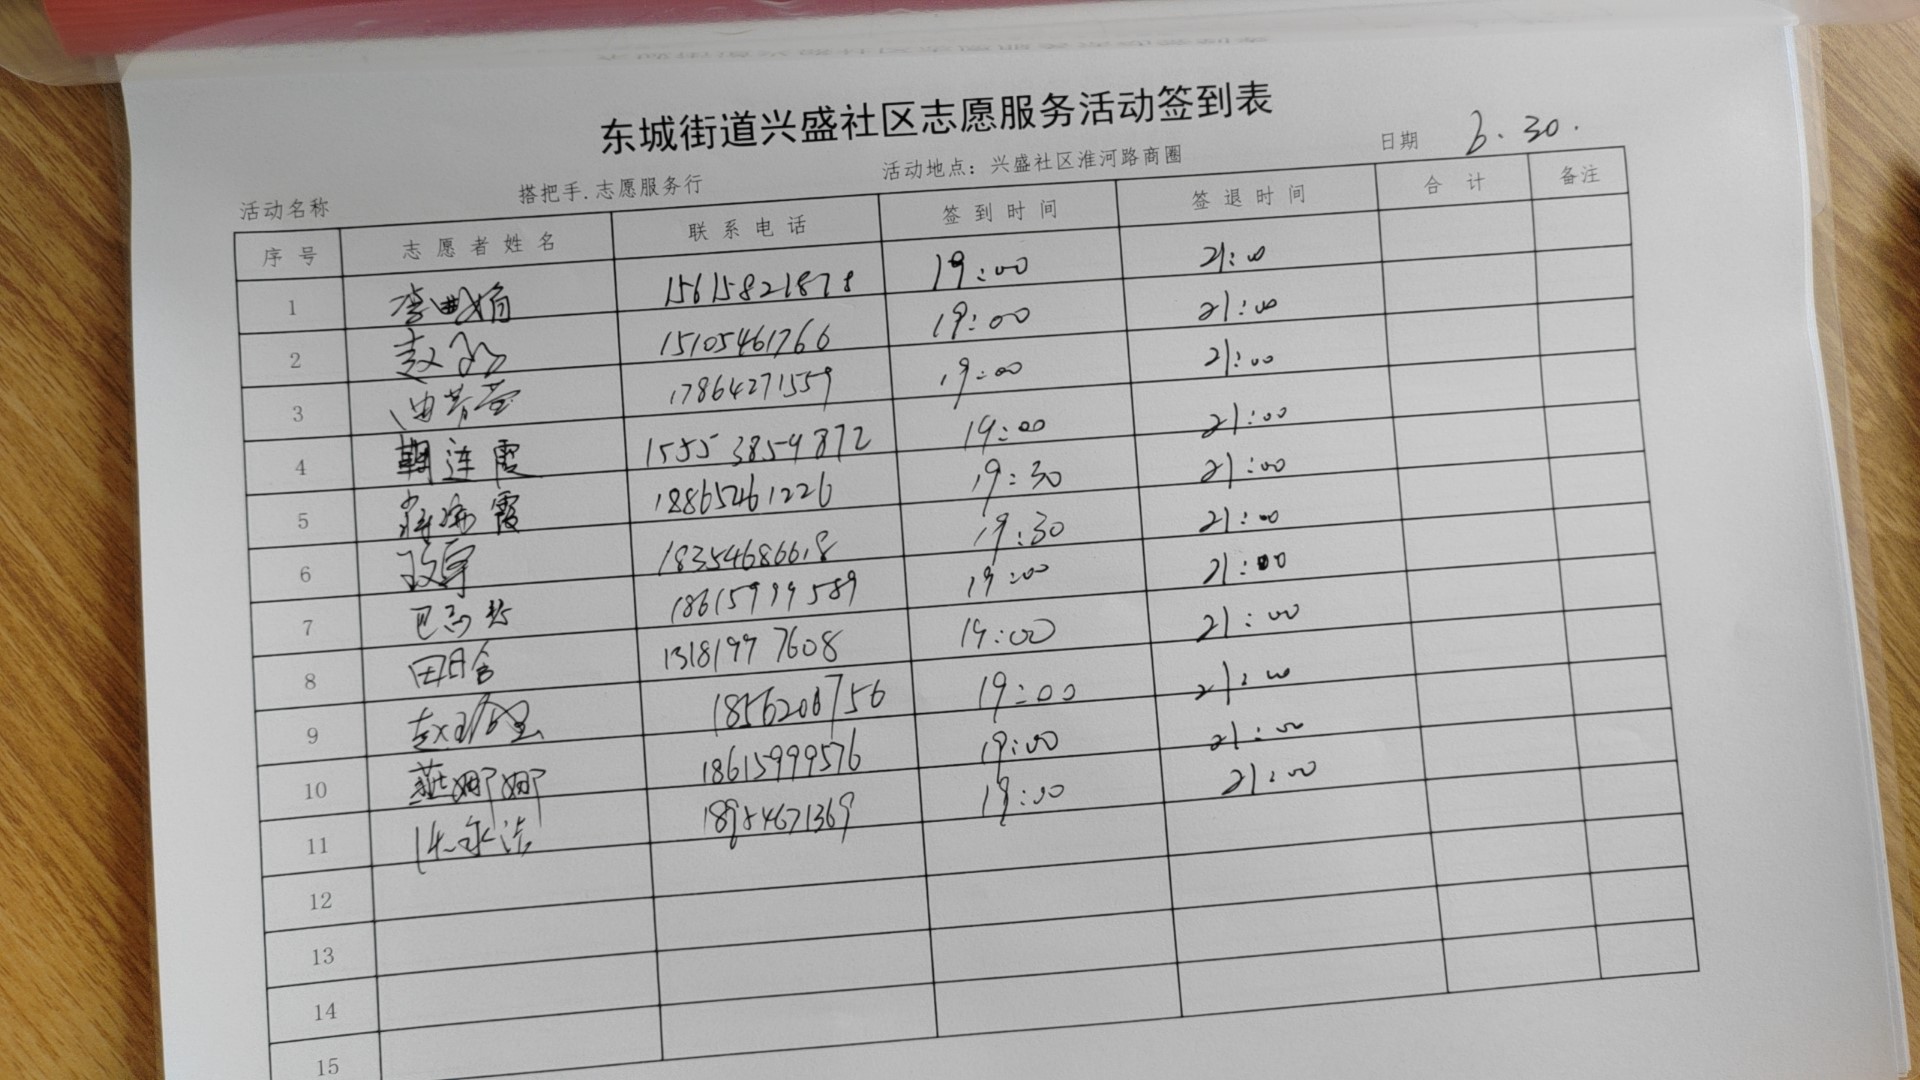 东城街道兴盛社区志愿服务活动签到表
活动名称 搭把手.志愿服务行 活动地点：兴盛社区淮河路商圈 日期 6.30.
序号 志愿者姓名 联系电话 签到时间 签退时间 合计 备注
1 李曲娟 15615821878 19:00 21:00
2 赵 15105461766 19:00 21:00
3 曲芳 17864271559 19:00 21:00
4 韩连霞 15553859872 19:00 21:00
5 霞 18865461226 19:30 21:00
6 18354686618 19:30 21:00
7 巴 18615999589 19:00 21:00
8 田 13181997608 19:00 21:00
9 赵 19:00 21:00
10 燕娜娜 18615999576 19:00 21:00
11 永洁 18954671369 19:00 21:00
12
13
14
15